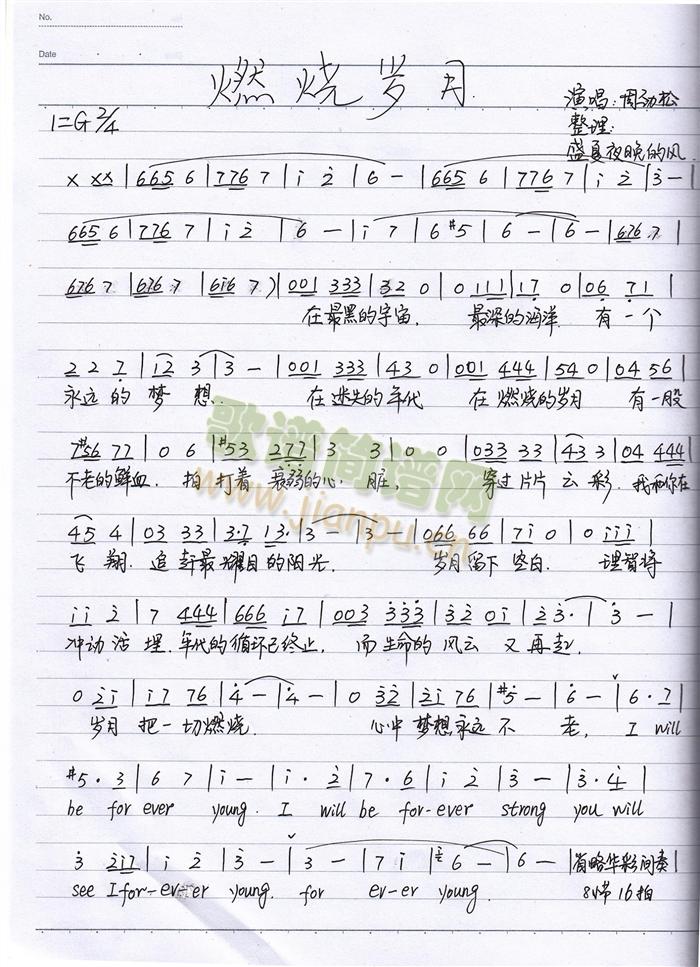 No.
Date
燃烧岁月
演唱:周劲松
1=G 2/4
整理:
盛夏夜晚的风
x xx | 665 6 | 776 7 | i 2 | 6 - | 665 6 | 776 7 | i 2 | 3 - |
665 6 | 776 7 | i 2 | 6 - | i 7 | 6 #5 | 6 - | 6 - | 676 7 |
676 7 | 676 7 | 6i6 7 ) | 001 333 | 32 0 | 0 111 | 17 0 | 06 71 |
在最黑的宇宙. 最深的海洋 有一个
2 2 7 | 12 3 | 3 - | 001 333 | 43 0 | 001 444 | 54 0 | 04 56 |
永远的梦想. 在迷失的年代 在燃烧的岁月 有一股
7#56 77 | 0 6 | #53 277 | 3 3 | 0 0 | 033 33 | 43 3 | 04 444 |
不老的鲜血. 拍打着衰弱的心脏, 穿过片片云彩. 我和你在
45 4 | 03 33 | 3·7 13· | 3 - | 3 - | 066 66 | 7i 0 | 0 iii |
飞翔. 追赶最耀目的阳光. 岁月留下空白. 理智将
ii 2 | 7 444 | 666 i7 | 003 333 | 32 0i | 23· | 3 - |
冲动活埋. 年代的循环已终止. 而生命的风云又再起.
0 2i | i7 76 | 4 - | 4 - | 0 32 | 2i 76 | #5 - | 6 - | 6 · 7 |
岁月把一切燃烧. 心中梦想永远不老, I will
#5 · 3 | 6 7 | i - | i · 2 | 7 · 6 | i 2 | 3 - | 3 · 4 |
be for ever young. I will be for-ever strong you will
3 2i7 | i 2 | 3 - | 3 - | 7 i | 6 - | 6 - | 省略华彩间奏
see I for-ev-er young. for ev-er young. 8小节16拍
歌谱简谱网
www.jianpu.cn